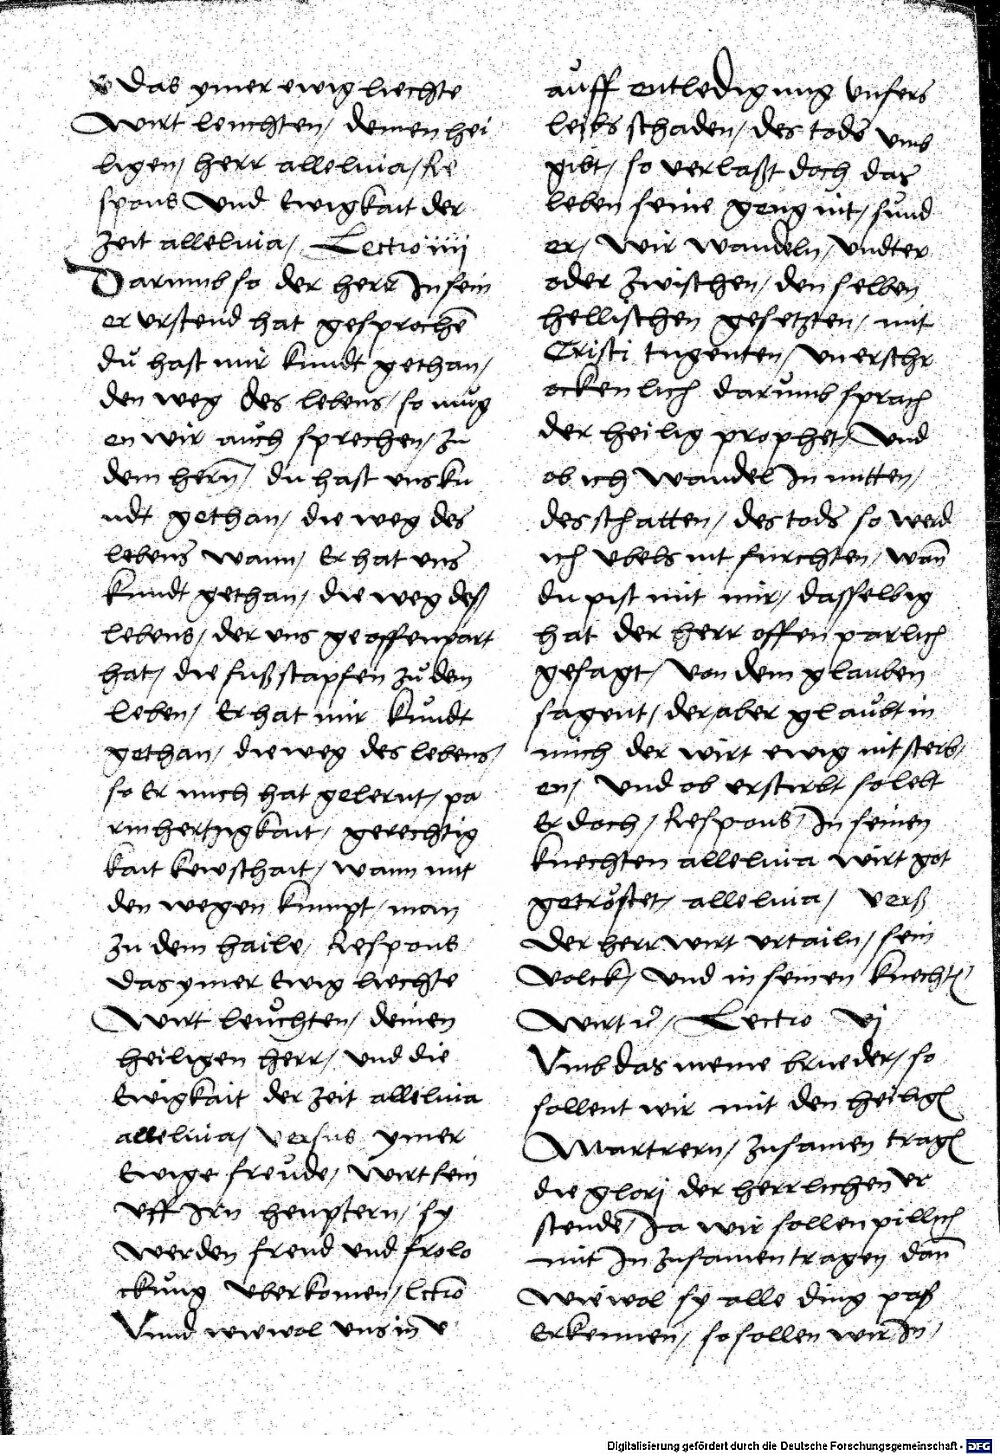 das ymer ewig liechte
Wirt leuchten/ deinen hei
ligen/ herr alleluia/ Re
spons Und Ewigkait der
Zeit alleluia/ Lectio iiii
Darumb so der herr In sein
er urstend hat gesprochē
du hast mir kundt gethan/
den weg des lebens/ so mug
en wir auch sprechen/ zu
dem hern̄/ du hast uns ku
ndt gethan/ die weg des
lebens wann/ Er hat uns
kundt gethan/ die weg deß
lebens/ der uns geoffenpart
hat/ die fußstapfen zu dem
leben/ Er hat mir kundt
gethan/ die weg des lebens/
so Er mich hat gelernt/ pa
rmhertzigkait/ gerechtig
kait kewschait/ wann mit
den wegen kumpt/ man
zu dem haile/ Respons
das ymer Ewig liechte
Wirt leuchten/ deinen
heiligen herr/ und die
Ewigkait der zeit alleluia
alleluia/ versus ymer
Ewige freude/ wirt sein
uff Irn heuptern/ sy
werden freud und frolo
ckung uberkomen/ lctio
Unnd wiewol uns in v
auff entledigung unsers
leibs schaden/ des tods umb
gibt/ so verlaßt doch das
leben seine geng nit/ sund
er/ wir wandeln/ undter
oder zwischen/ den selben
hellischen gesetzten/ mit
Cristi tugenten/ unerschr
ockenlich darumb sprach
der heilig prophet/ Und
ob ich wandel In mitten/
des schatten/ des tods so werd
ich ubels nit furchten/ wan̄
du pist mit mir/ dasselbig
hat der herr offenparlich
gesagt/ von dem glauben
sagent/ der aber glaubt in
mich der wirt ewig nit sterb/
en/ und ob er stirbt so lebt
Er doch/ Respons/ In seinen
knechten alleluia wirt got
getrostet/ alleluia/ verß
der herr wirt urtailn/ sein
Volck/ Und in seinen knecht
Wirt / Lectio vj
Umb das meine brueder/ so
sollent wir mit den heilig
Martrern/ zusamen trag
die glorj der herrlichen ur
stende/ Ja wir sollen pillich
mit In zusamen tragen dan̄
wiewol sy alle ding paß
Erkennen/ so sollen wir In/
Digitalisierung gefördert durch die Deutsche Forschungsgemeinschaft - DFG